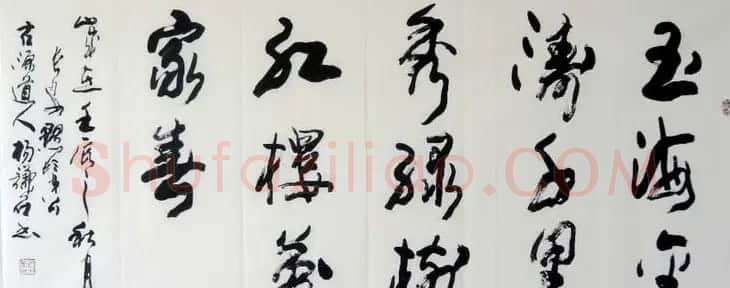 玉海金
濤千里
秀綠樹
紅樓萬
家春
壬辰之秋月
古道人楊謙書
Shufaziliao.COM